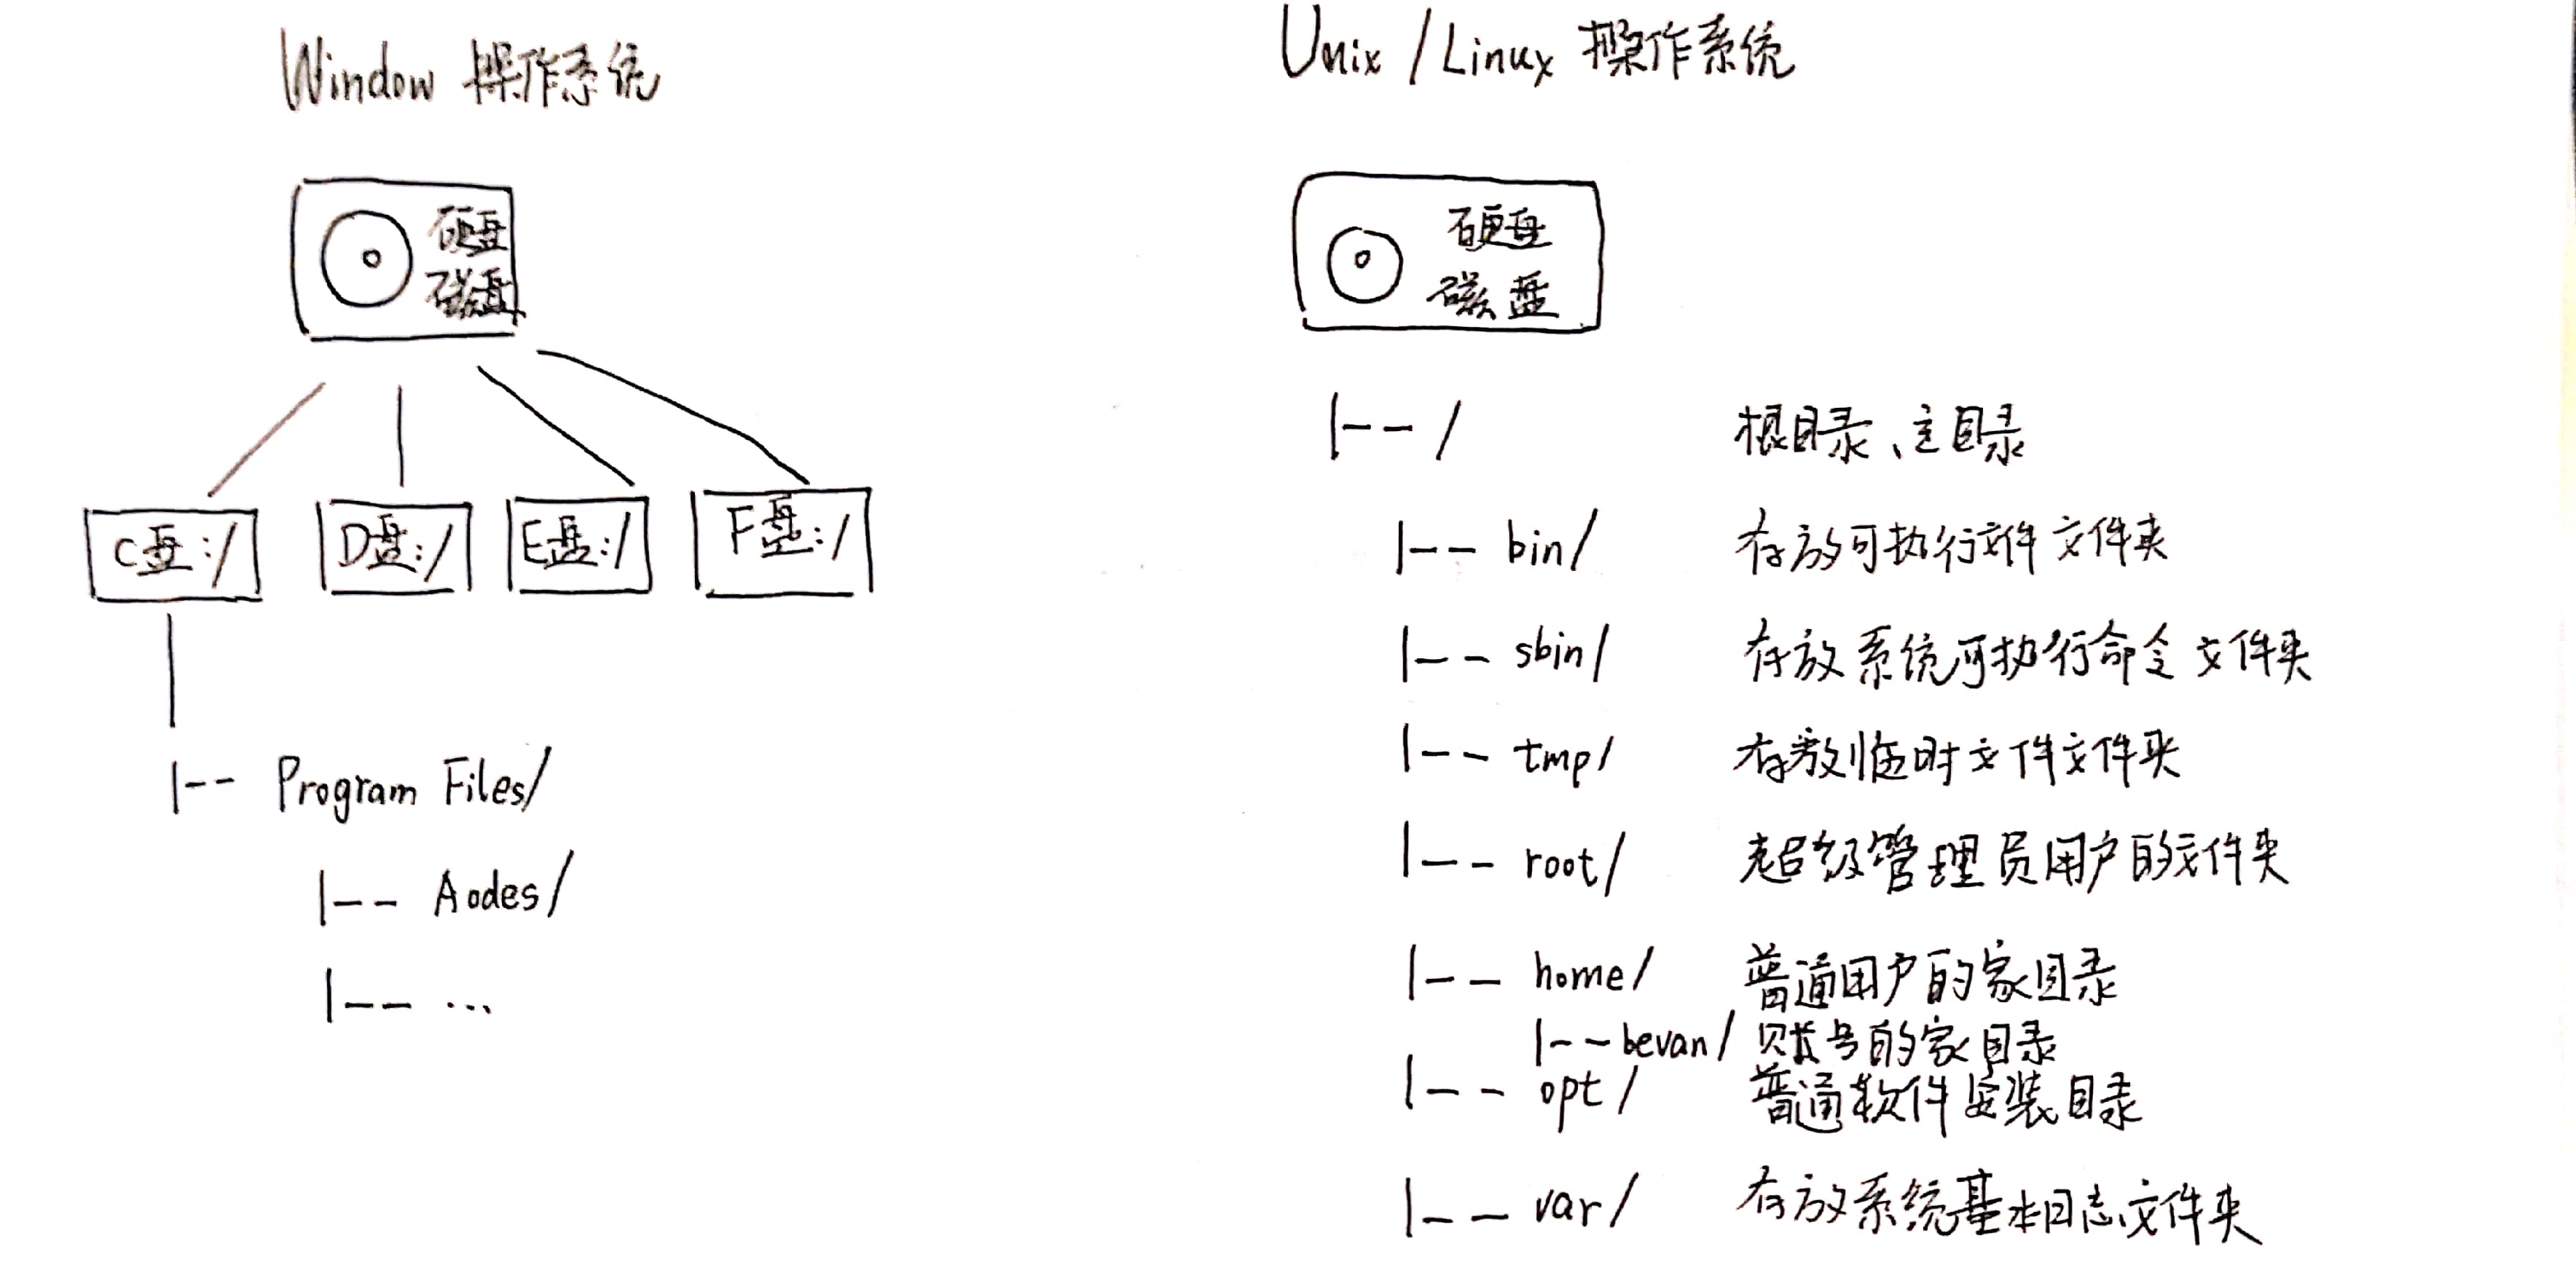 Window 操作系统
硬盘
磁盘
C盘:/ D盘:/ E盘:/ F盘:/
|-- Program Files/
|-- Aodes/
|-- ...
Unix /Linux 操作系统
硬盘
磁盘
|-- / 根目录、主目录
|-- bin/ 存放可执行文件文件夹
|-- sbin/ 存放系统可执行命令文件夹
|-- tmp/ 存放临时文件文件夹
|-- root/ 超级管理员用户的文件夹
|-- home/ 普通用户的家目录
|-- bevan/ 账号的家目录
|-- opt/ 普通软件安装目录
|-- var/ 存放系统基本日志文件夹